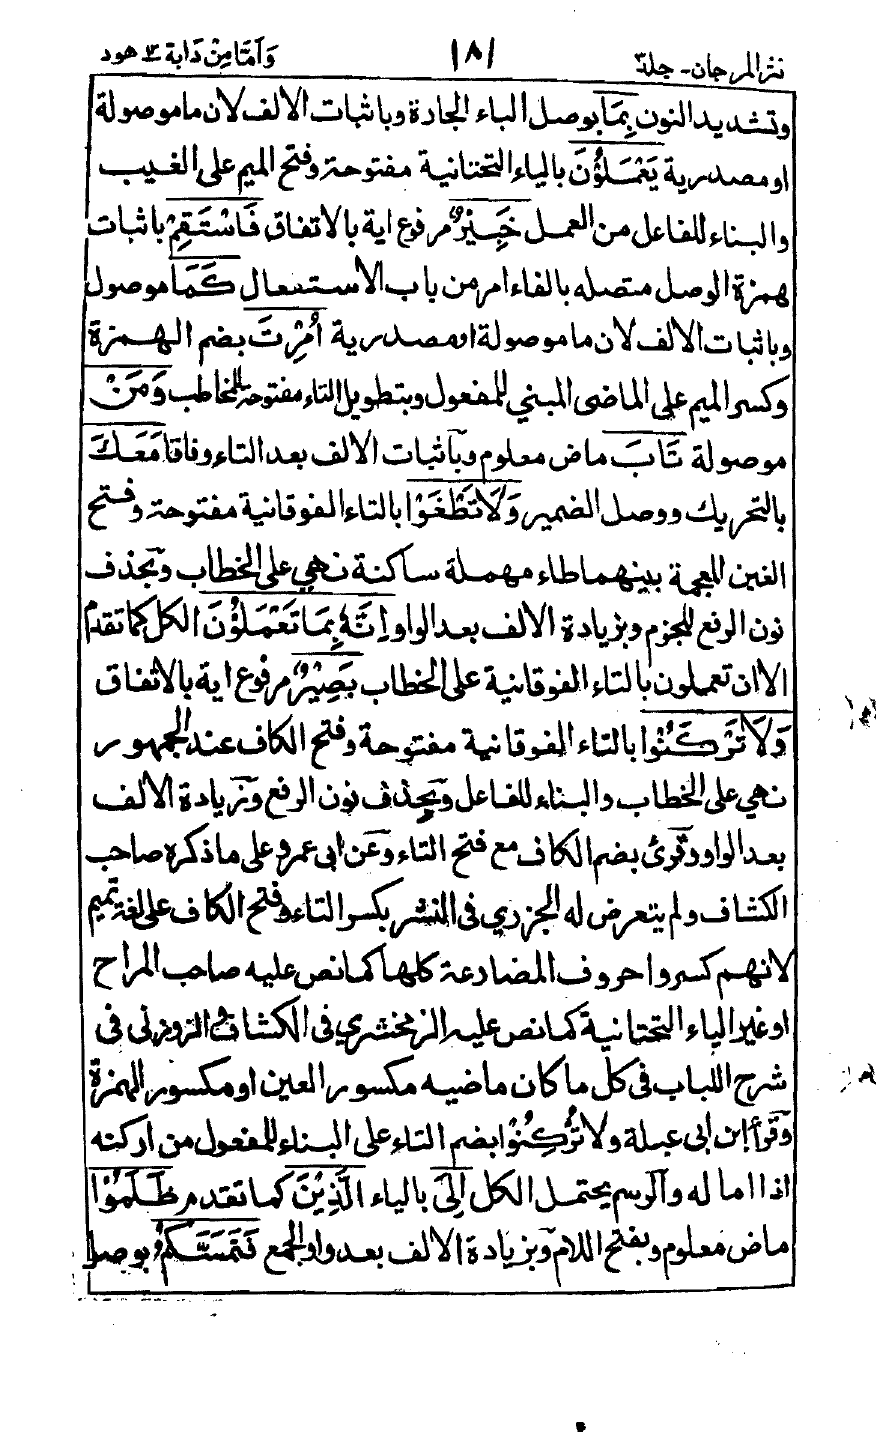 نثر المرجان - جلد ٣ ١٨١ وَمَا مِنْ دَابة ١٢ هود
وتشديد النون بِمَا بوصل الباء الجارة وباثبات الالف لان ما موصولة
او مصدرية يَعْمَلُوْنَ بالياء التحتانية مفتوحة وفتح الميم على الغيب
والبناء للفاعل من العمل خَبِيْرٌ مرفوع اية بالاتفاق فَاسْتَقِمْ باثبات
همزة الوصل متصله بالفاء امر من باب الاستفعال كَمَا موصول
وباثبات الالف لان ما موصولة او مصدرية اُمِرْتَ بضم الهمزة
وكسر الميم على الماضى المبني للمفعول وبتطويل التاء مفتوحة للمخاطب وَمَنْ
موصولة تَابَ ماض معلوم وباثبات الالف بعد التاء وفاقا مَعَكَ
بالتحريك ووصل الضمير وَلَا تَطْغَوْا بالتاء الفوقانية مفتوحة وفتح
الغين المعجمة بينهما طاء مهملة ساكنة نهي على الخطاب وبحذف
نون الرفع للجزم وبزيادة الالف بعد الواو اِنَّهٗ بِمَا تَعْمَلُوْنَ الكل كما تقدم
الا ان تعملون بالتاء الفوقانية على الخطاب بَصِيْرٌ مرفوع اية بالاتفاق
وَلَا تَرْكَنُوْا بالتاء الفوقانية مفتوحة وفتح الكاف عند الجمهور
نهي على الخطاب والبناء للفاعل وبحذف نون الرفع وبزيادة الالف
بعد الواو وقرئ بضم الكاف مع فتح التاء وعن ابى عمرو على ما ذكره صاحب
الكشاف ولم يتعرض له الجزري فى النشر بكسر التاء وفتح الكاف على لغة تميم
لانهم كسروا حروف المضارعة كلها كما نص عليه صاحب المراح
او غير الياء التحتانية كما نص عليه الزمخشري فى الكشاف والزوزنى فى
شرح اللباب فى كل ما كان ماضيه مكسور العين او مكسور الهمزة
وقرأ ابن ابى عبلة ولا تُرْكِنُوْا بضم التاء على البناء للمفعول من اركنه
اذا اماله والرسم يحتمل الكل اِلَى بالياء الَّذِيْنَ كما تقدم ظَلَمُوْا
ماض معلوم وبفتح اللام وبزيادة الالف بعد واو الجمع فَتَمَسَّكُمُ بوصل